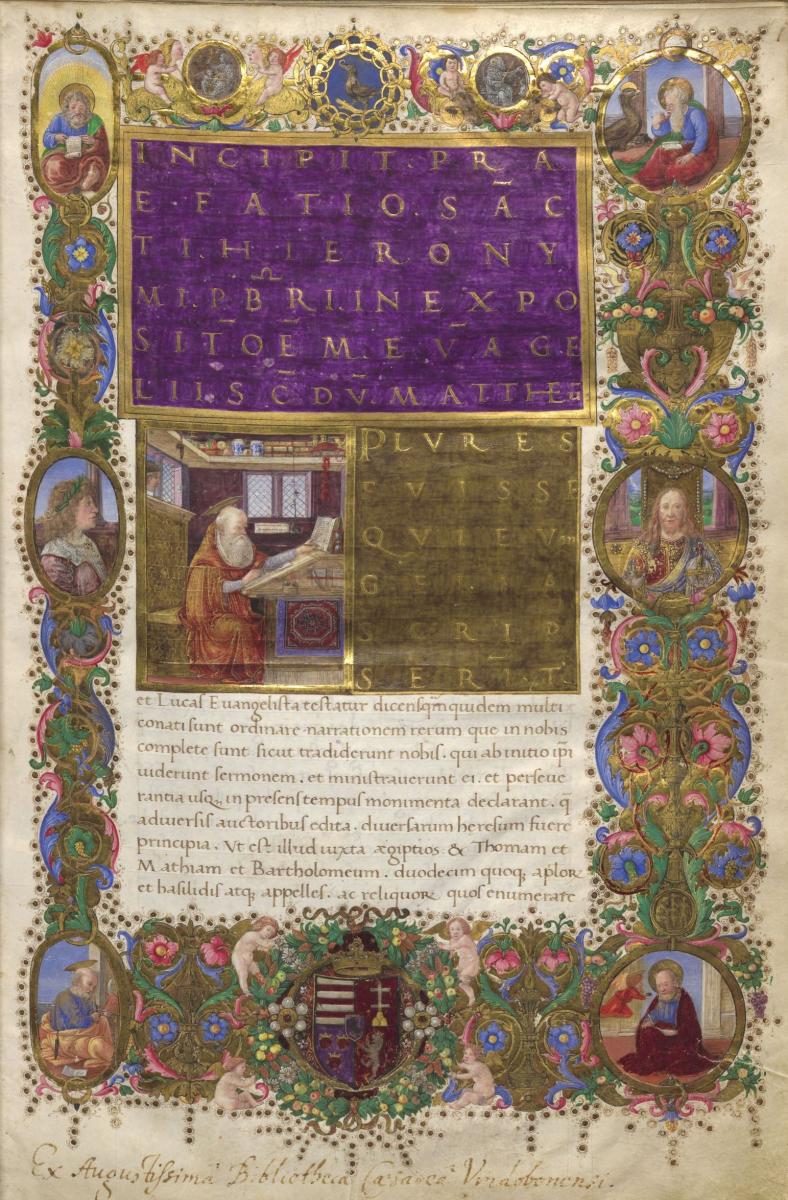 INCIPIT.PRA
EFATIO.SAC
TI.HIERONY
MI.PBRI.IN EXPO
SITOEM.EVAGE
LII.SC̄DV̄.MATTHEu
PLVRES
FVISSE
QVI EVan
GELIA
SCRIP
SERĪT.
et Lucas Evangelista testatur dicens qm quidem multi
conati sunt ordinare narrationem rerum que in nobis
complete sunt sicut tradiderunt nobis. qui ab initio ipi
viderunt sermonem. et ministraverunt ei. et perseve
rantia usq; in presens tempus monimenta declarant. q̄
a diversis auctoribus edita. diversarum heresum fuere
principia. Vt est illud iuxta ægiptios & Thomam et
Mathiam et Bartholomeum. duodecim quoq; aplor
et basilidis atq; appelles. ac reliquor quos enumerare
Ex Augustissimâ Bibliotheca Cæsareâ Vindobonensi.